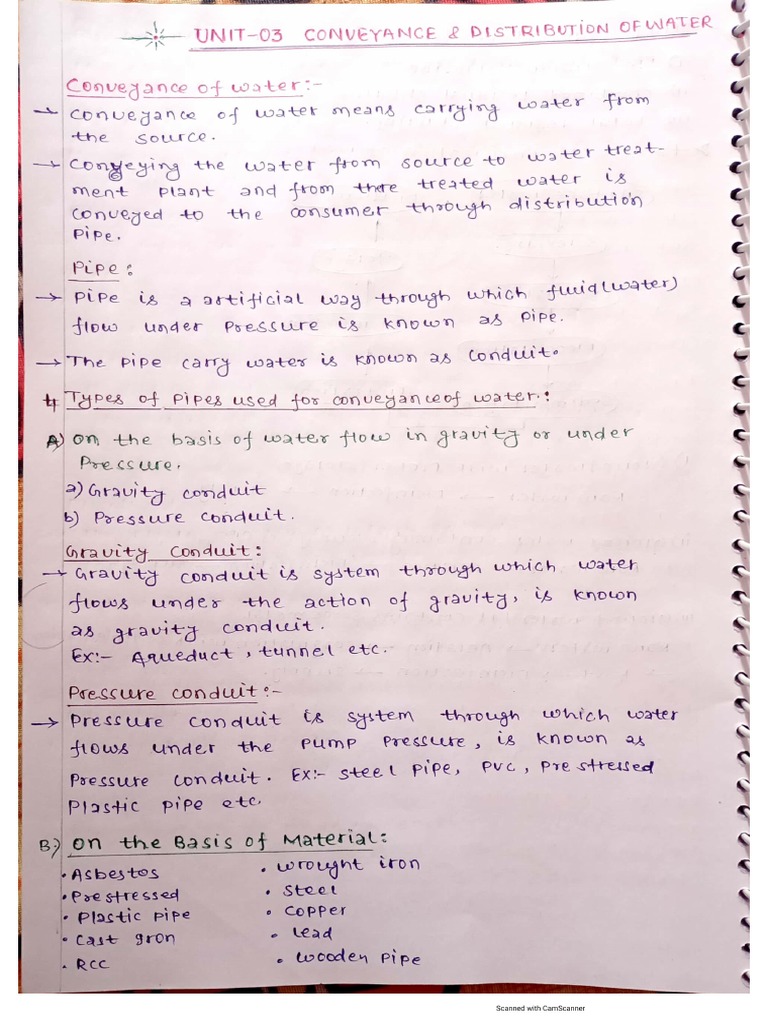 UNIT-03 CONVEYANCE & DISTRIBUTION OF WATER
Conveyance of water:-
→ Conveyance of water means carrying water from
the source.
→ Conveying the water from source to water treat-
ment plant and from there treated water is
conveyed to the consumer through distribution
Pipe.
Pipe:
→ Pipe is a artificial way through which fluid(water)
flow under Pressure is known as Pipe.
→ The Pipe carry water is known as conduit.
Types of Pipes used for conveyance of water:
A) on the basis of water flow in gravity or under
Pressure.
a) Gravity conduit
b) Pressure conduit.
Gravity Conduit:
→ Gravity conduit is system through which water
flows under the action of gravity, is known
as gravity conduit.
Ex:- Aqueduct, tunnel etc.
Pressure conduit:-
→ Pressure conduit is system through which water
flows under the Pump Pressure, is known as
Pressure conduit. Ex:- steel pipe, PVC, Prestressed
Plastic pipe etc.
B) on the Basis of Material:
• Asbestos
• Prestressed
• Plastic pipe
• Cast gron
• RCC
• wrought iron
• steel
• copper
• lead
• wooden pipe
Scanned with CamScanner